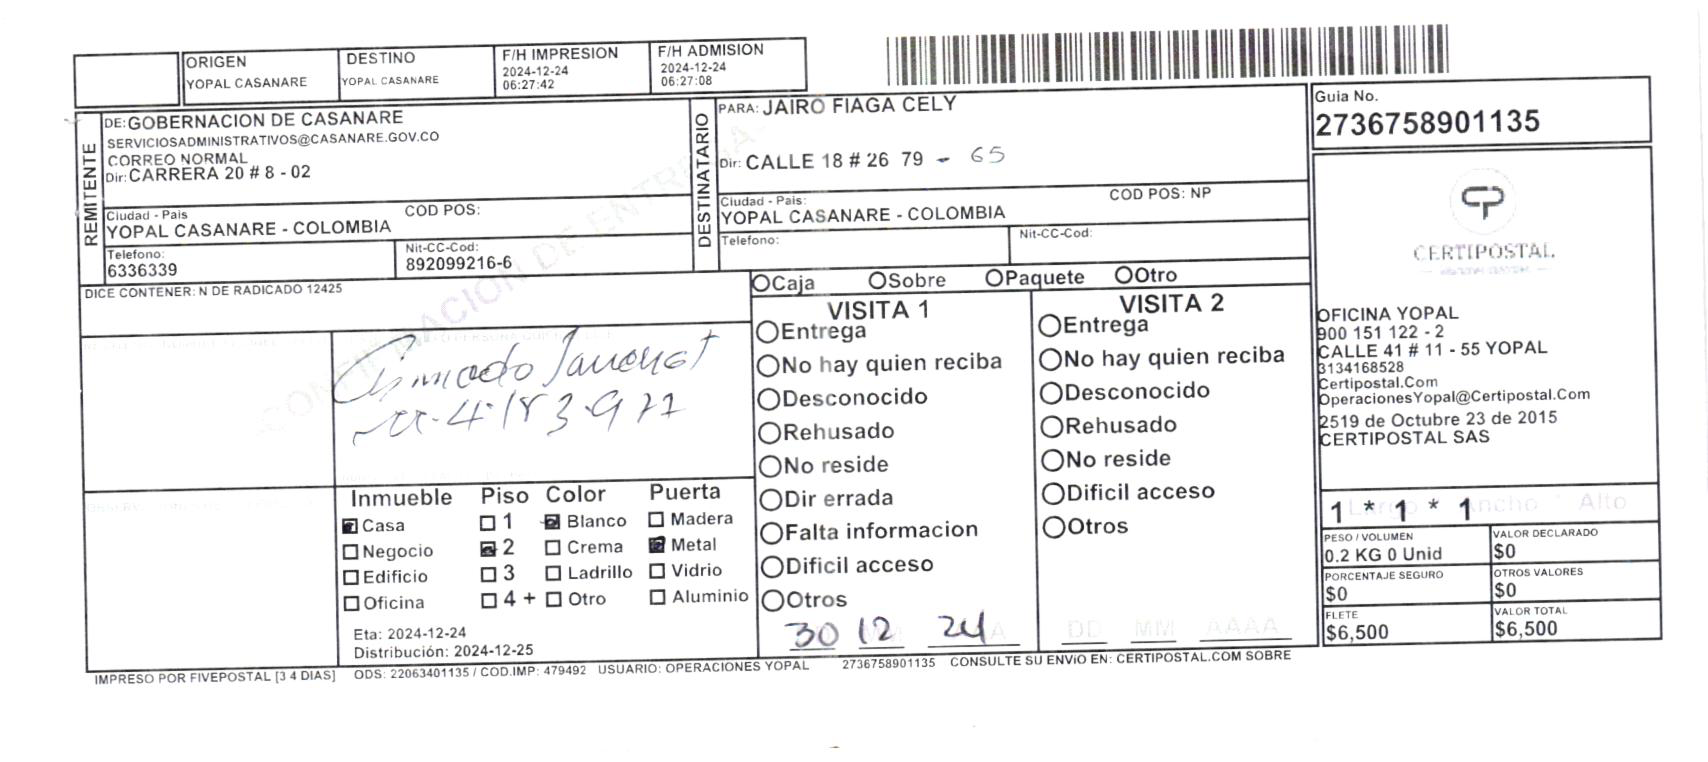 ORIGEN
YOPAL CASANARE
DESTINO
YOPAL CASANARE
F/H IMPRESION
2024-12-24
06:27:42
F/H ADMISION
2024-12-24
06:27:08
REMITENTE
DE: GOBERNACION DE CASANARE
SERVICIOSADMINISTRATIVOS@CASANARE.GOV.CO
CORREO NORMAL
Dir: CARRERA 20 # 8 - 02
Ciudad - Pais
COD POS:
YOPAL CASANARE - COLOMBIA
Telefono:
6336339
Nit-CC-Cod:
892099216-6
DESTINATARIO
PARA: JAIRO FIAGA CELY
Dir: CALLE 18 # 26 79 - 65
Ciudad - Pais:
COD POS: NP
YOPAL CASANARE - COLOMBIA
Telefono:
Nit-CC-Cod:
Guia No.
2736758901135
CERTIPOSTAL
OFICINA YOPAL
900 151 122 - 2
CALLE 41 # 11 - 55 YOPAL
3134168528
Certipostal.Com
OperacionesYopal@Certipostal.Com
2519 de Octubre 23 de 2015
CERTIPOSTAL SAS
Largo Ancho Alto
1 * 1 * 1
PESO / VOLUMEN
0.2 KG 0 Unid
VALOR DECLARADO
$0
PORCENTAJE SEGURO
$0
OTROS VALORES
$0
FLETE
$6,500
VALOR TOTAL
$6,500
DICE CONTENER: N DE RADICADO 12425
CONFIRMACION DE ENTREGA
Caja Sobre Paquete Otro
VISITA 1
Entrega
No hay quien reciba
Desconocido
Rehusado
No reside
Dir errada
Falta informacion
Dificil acceso
Otros
30 12 24
VISITA 2
Entrega
No hay quien reciba
Desconocido
Rehusado
No reside
Dificil acceso
Otros
DD MM AAAA
4.183.977
Inmueble Piso Color Puerta
Casa 1 Blanco Madera
Negocio 2 Crema Metal
Edificio 3 Ladrillo Vidrio
Oficina 4 + Otro Aluminio
Eta: 2024-12-24
Distribución: 2024-12-25
IMPRESO POR FIVEPOSTAL [3 4 DIAS] ODS: 22063401135 / COD.IMP: 479492 USUARIO: OPERACIONES YOPAL 2736758901135 CONSULTE SU ENVíO EN: CERTIPOSTAL.COM SOBRE